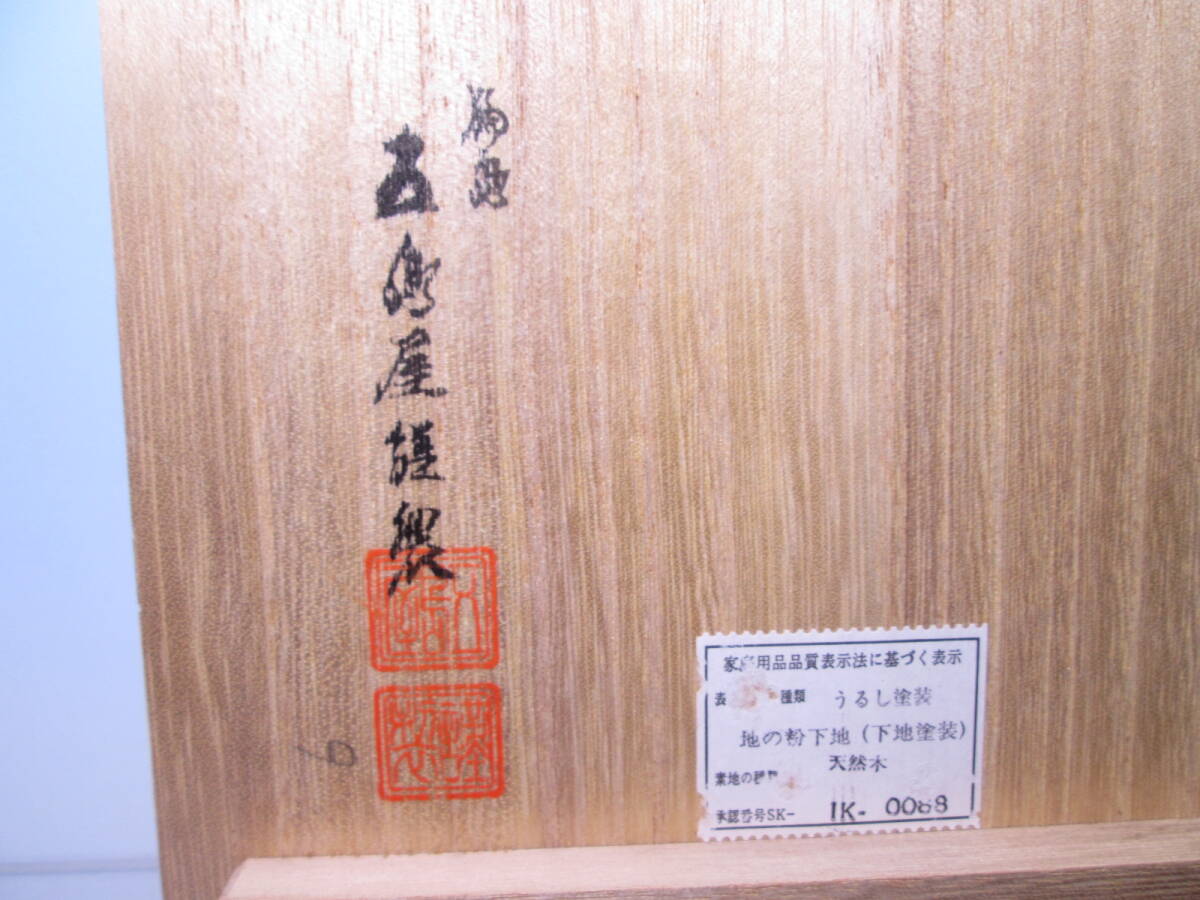 輪島
五嶋屋謹製
家庭用品品質表示法に基づく表示
表 種類 うるし塗装
地の粉下地(下地塗装)
天然木
素地の種類
承認番号SK- IK- 0088
6